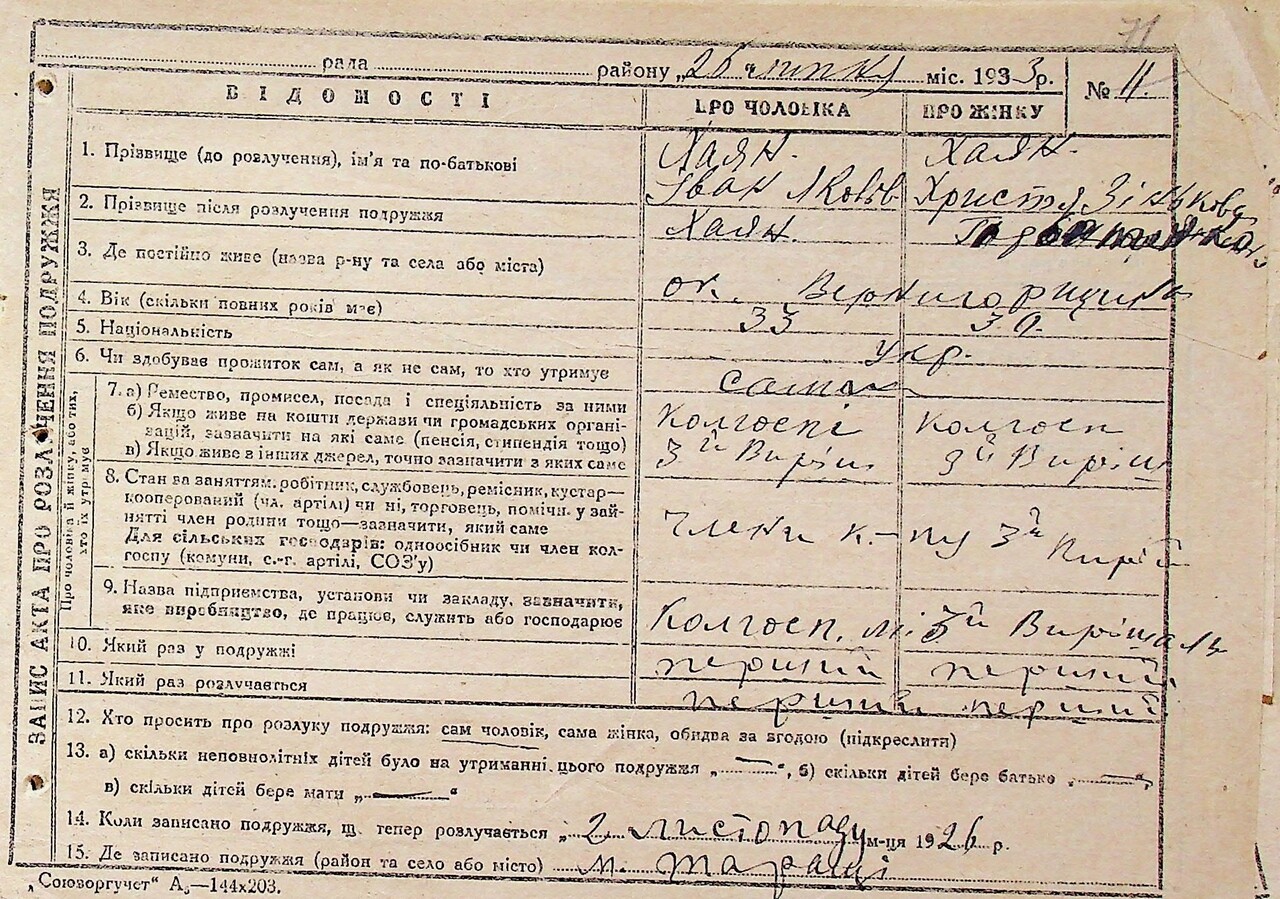 71
рада району „26 липня міс. 1933р. № 11.
ВІДОМОСТІ ПРО ЧОЛОВІКА ПРО ЖІНКУ
ЗАПИС АКТА ПРО РОЗЛУЧЕННЯ ПОДРУЖЖЯ
1. Прізвище (до розлучення), ім'я та по-батькові Хаян. Хаян.
Іван Яковів Христя Зінькова
2. Прізвище після розлучення подружжя Хаян.
3. Де постійно живе (назва р-ну та села або міста)
4. Вік (скільки повних років має) 33 30.
5. Національність укр.
6. Чи здобуває прожиток сам, а як не сам, то хто утримує сами
Про чоловіка й жінку, або тих, хто їх утримує
7. а) Ремество, промисел, посада і спеціяльність за ними
б) Якщо живе на кошти держави чи громадських органі- Колгоспі Колгосп
зацій, зазначити на які саме (пенсія, стипендія тощо)
в) Якщо живе з інших джерел, точно зазначити з яких саме 3й Виріш 3й Виріш
8. Стан за заняттям. робітник, службовець, ремісник, кустар—
кооперований (чл. артілі) чи ні, торговець, помічн. у зай-
нятті член родини тощо—зазначити, який саме члени к-пу 3й
Для сільських господарів: одноосібник чи член кол-
госпу (комуни, с.-г. артілі, СОЗ'у)
9. Назва підприємства, установи чи закладу, зазначити,
яке виробництво, де працює, служить або господарює Колгосп. 3й Вирішаль
10. Який раз у подружжі перший перший
11. Який раз розлучається перший перший
12. Хто просить про розлуку подружжя: сам чоловік, сама жінка, обидва за згодою (підкреслити)
13. а) скільки неповнолітніх дітей було на утриманні цього подружжя „—“, б) скільки дітей бере батько „—“
в) скільки дітей бере мати „—“
14. Коли записано подружжя, щ. тепер розлучається „2 листопаду м-ця 1926 р.
15. Де записано подружжя (район та село або місто) м. Таращі
„Союзоргучет“ А₅—144x203.